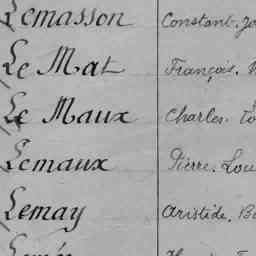 Lemasson Constant.
Le Mat François.
Le Maux Charles.
Lemaux Pierre. Lou
Lemay Aristide. Ba